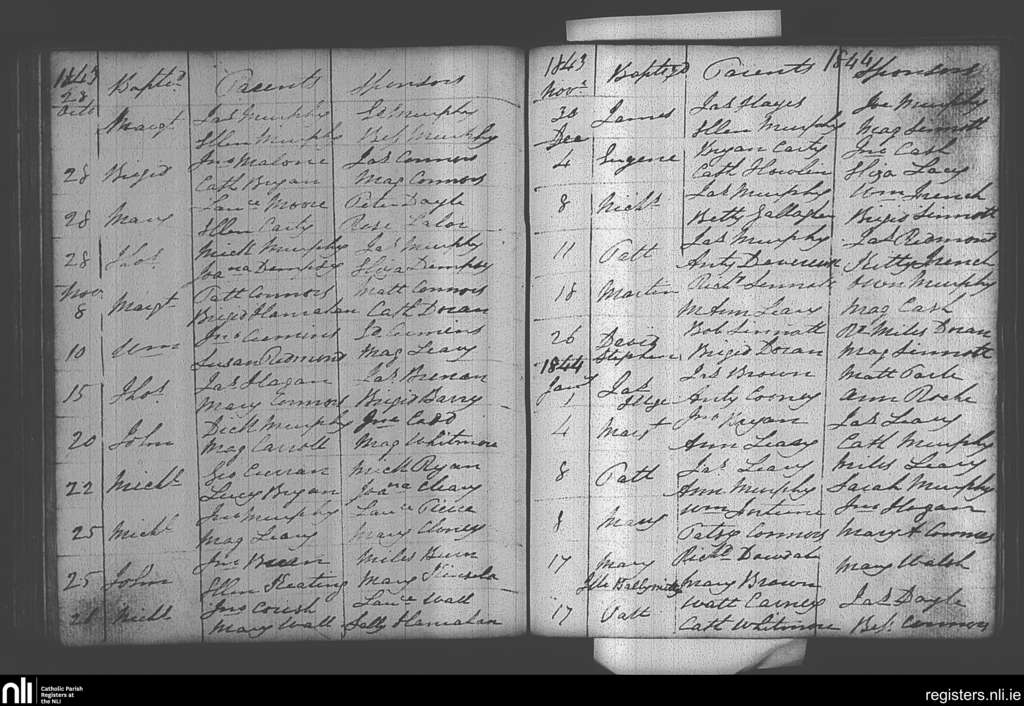 1843 Baptd Parents Sponsors
28
Octr Margt Jas Murphy Ls Murphy
Ellen Murphy Bess Murphy
28 Brigid Jno Malone Jas Connors
Cath Bryan Mag Connors
28 Mary Lance Moore Peter Doyle
Ellen Carty Rose Lalor
28 Thos Mick Murphy Jas Murphy
Joana Dempsy Eliza Dempsy
Novr
8 Margt Patt Connors Matt Connors
Brigid Hanrahan Cath Doran
10 Wm Jno Cumins Pd Cumins
Susan Redmond Mag Leary
15 Thos Jas Hagan Jas Brenan
Mary Connors Brigid Barry
20 John Dick Murphy Jno Codd
Mag Carroll Mag Whitmore
22 Michl Geo Curran Mick Ryan
Lucy Bryan Joana Cleary
25 Michl Jno Murphy Lance Peirce
Mag Leary Mary Cloney
25 John Jno Breen Miles Burn
Ellen Keating Mary Kinsela
26 Michl Jno Coush Lance Wall
Mary Wall Sally Hanrahan
1843 Baptizd Parents 1844 Sponsors
Novr
30 James Jas Hayes Joe Murphy
Ellen Murphy Mag Sinnott
Dec
4 Eugene Bryan Carty Jno Cash
Cath Howlin Eliza Lacy
8 Nichs Jas Murphy Wm French
Betty Gallagher Brigid Sinnott
11 Patt Jas Murphy Jas Redmond
Anty Devereux Kitty French
18 Martin Richd Sinnott Owen Murphy
M Ann Leary Mag Cash
26 David Bob Sinnott Miles Doran
Stephen Brigid Doran Mag Sinnott
1844
Jany Jas Jas Brown Matt Parle
1 Anty Cooney Ann Roche
4 Margt Jno Bryan Jas Leary
Ann Leary Cath Murphy
8 Patt Jas Leary Miles Leary
Ann Murphy Sarah Murphy
8 Mary Wm Fortune Jno Hogan
Patsy Connors Mary Connors
17 Mary Richd Dowdall Mary Walsh
Mary Brown
17 Patt Watt Carney Jas Doyle
Cath Whitmore Bess Connors
nli Catholic Parish
Registers at
the NLI
registers.nli.ie